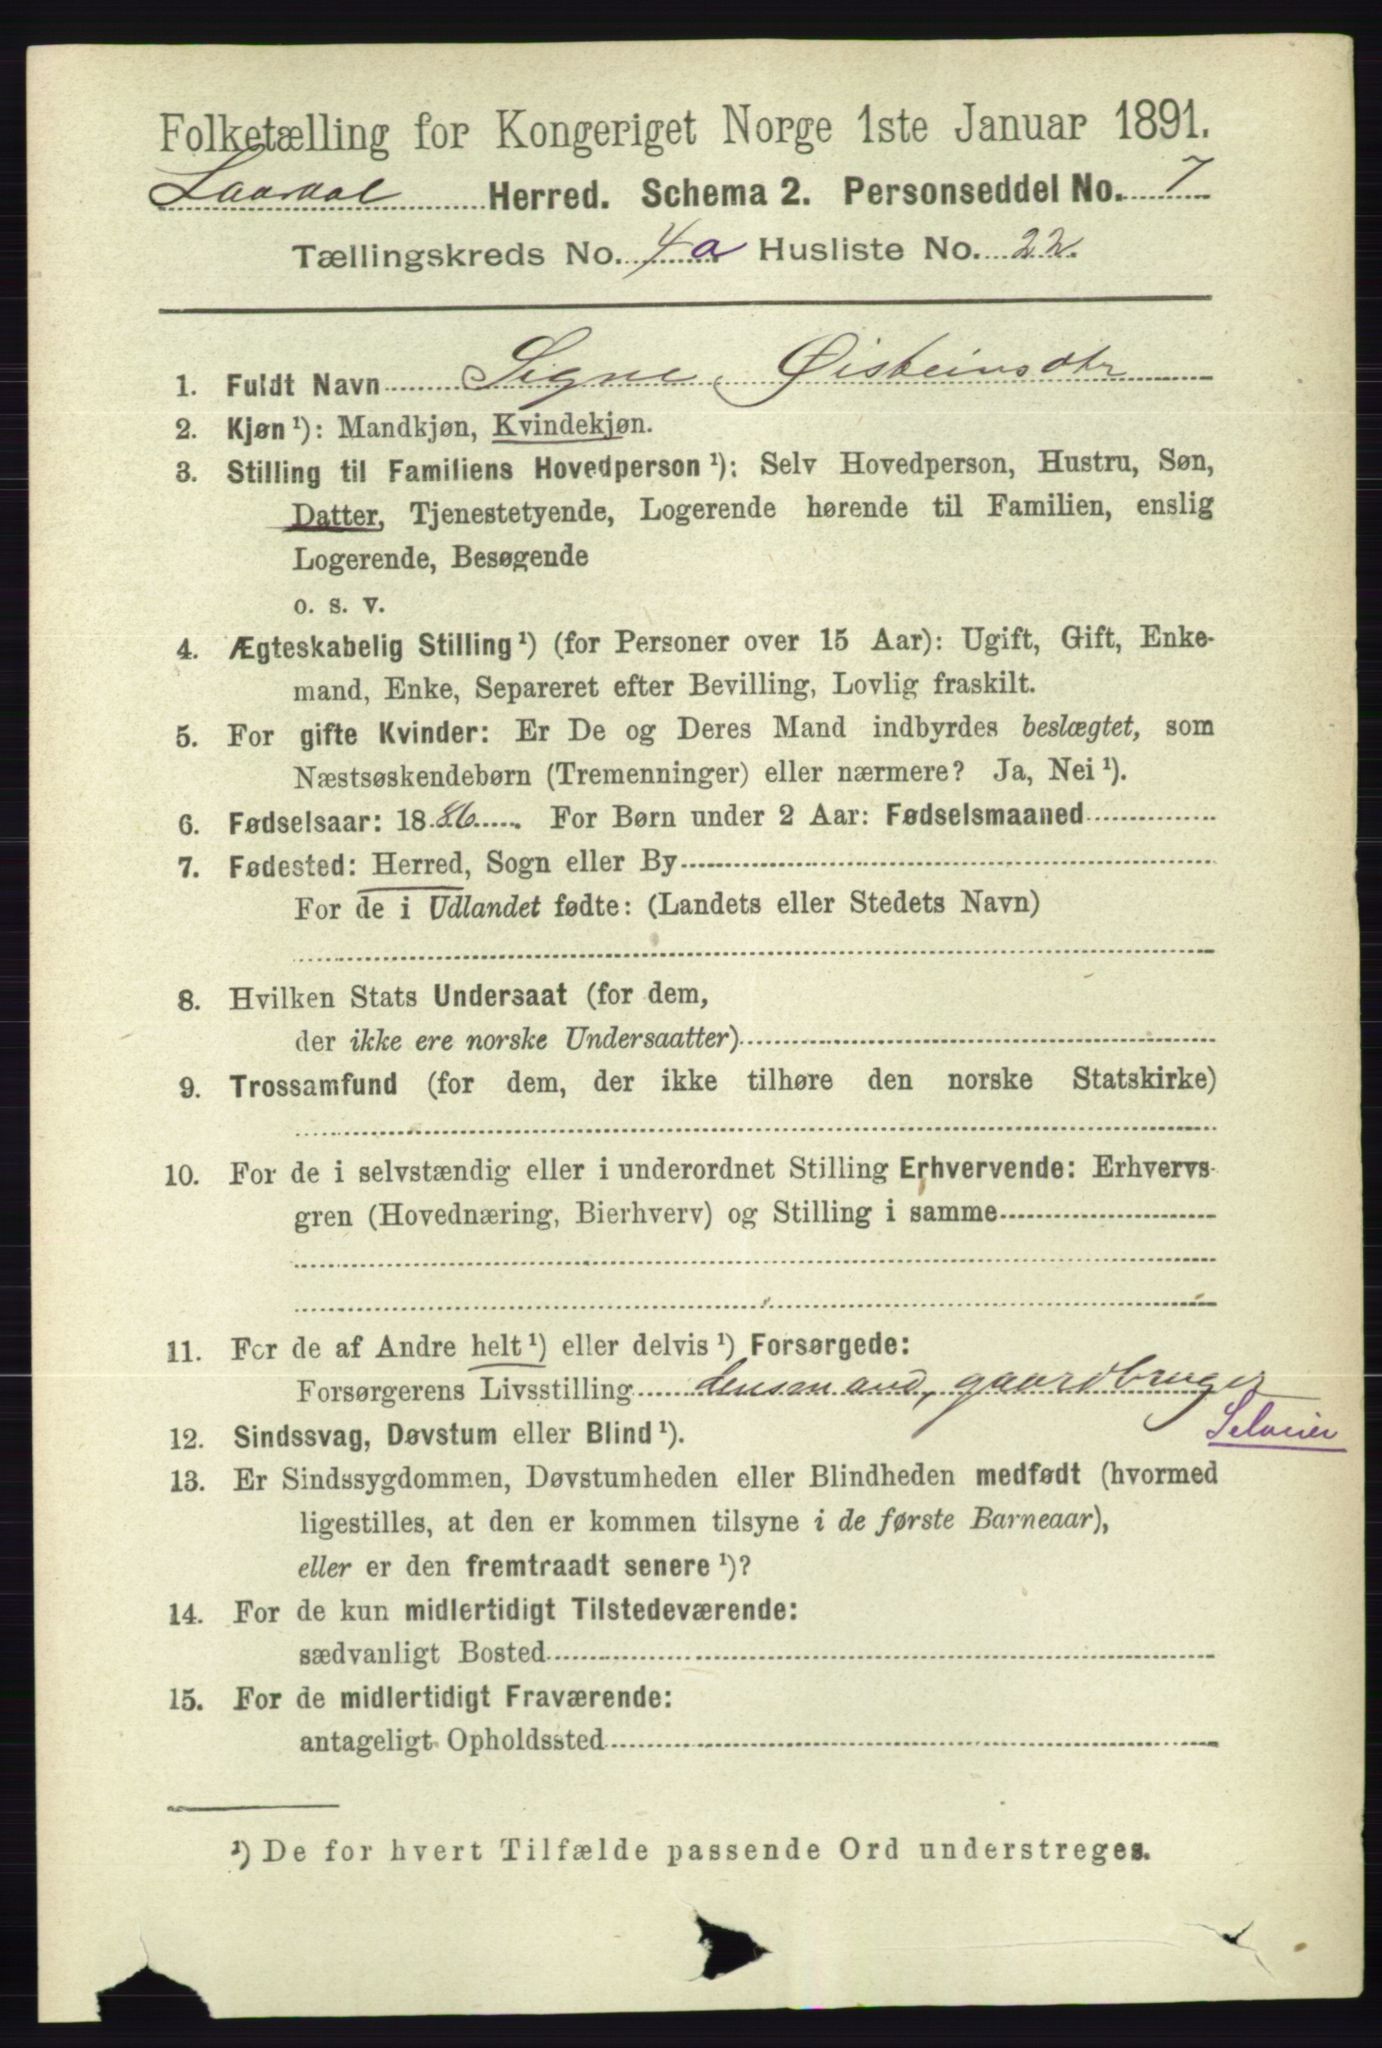 Folketælling for Kongeriget Norge 1ste Januar 1891.
Laardal Herred. Schema 2. Personseddel No. 7
Tællingskreds No. 4a Husliste No. 22.
1. Fuldt Navn Signe Øisteinsdtr
2. Kjøn ¹): Mandkjøn, Kvindekjøn.
3. Stilling til Familiens Hovedperson ¹): Selv Hovedperson, Hustru, Søn,
Datter, Tjenestetyende, Logerende hørende til Familien, enslig
Logerende, Besøgende
o. s. v.
4. Ægteskabelig Stilling ¹) (for Personer over 15 Aar): Ugift, Gift, Enke-
mand, Enke, Separeret efter Bevilling, Lovlig fraskilt.
5. For gifte Kvinder: Er De og Deres Mand indbyrdes beslægtet, som
Næstsøskendebørn (Tremenninger) eller nærmere? Ja, Nei ¹).
6. Fødselsaar: 1886. For Børn under 2 Aar: Fødselsmaaned
7. Fødested: Herred, Sogn eller By
For de i Udlandet fødte: (Landets eller Stedets Navn)
8. Hvilken Stats Undersaat (for dem,
der ikke ere norske Undersaatter)
9. Trossamfund (for dem, der ikke tilhøre den norske Statskirke)
10. For de i selvstændig eller i underordnet Stilling Erhvervende: Erhvervs-
gren (Hovednæring, Bierhverv) og Stilling i samme
11. For de af Andre helt ¹) eller delvis ¹) Forsørgede:
Forsørgerens Livsstilling Lensmand, gaardbruger
Seleier
12. Sindssvag, Døvstum eller Blind ¹).
13. Er Sindssygdommen, Døvstumheden eller Blindheden medfødt (hvormed
ligestilles, at den er kommen tilsyne i de første Barneaar),
eller er den fremtraadt senere ¹)?
14. For de kun midlertidigt Tilstedeværende:
sædvanligt Bosted
15. For de midlertidigt Fraværende:
antageligt Opholdssted
¹) De for hvert Tilfælde passende Ord understreges.